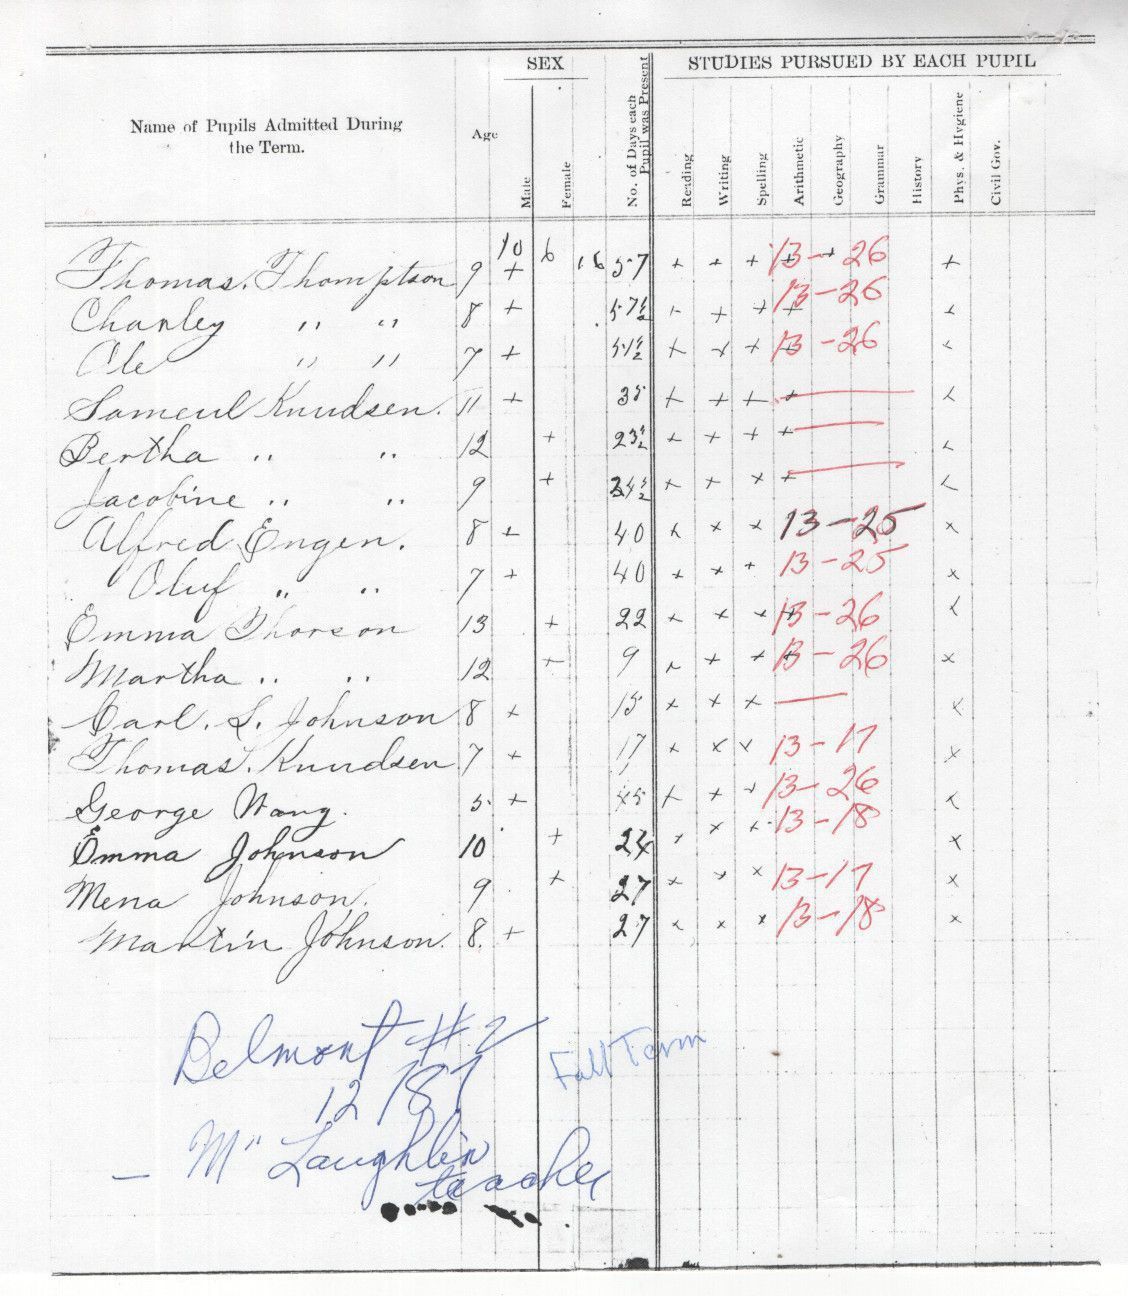 SEX
STUDIES PURSUED BY EACH PUPIL
Name of Pupils Admitted During the Term.
Age
Male
Female
No. of Days each Pupil was Present
Reading
Writing
Spelling
Arithmetic
Geography
Grammar
History
Phys. & Hygiene
Civil Gov.
10 6 16
Thomas. Thompson 9 + 57 + + + + + 13-26 +
Charley " " 8 + 57½ + + + + 13-26 +
Ole " " 7 + 51½ + + + + 13-26 +
Sameul Knudsen. 11 + 35 + + + + +
Bertha " " 12 + 23½ + + + + +
Jacobine " " 9 + 24½ + + + + +
Alfred Engen. 8 + 40 x x x 13-25 x
Oluf " " 7 + 40 x x + 13-25 x
Emma Thorson 13 + 22 + x x + 13-26 +
Martha " " 12 + 9 + + + + 13-26 x
Carl. S. Johnson 8 + 15 x x x x
Thomas. Knudsen 7 + 17 x x x 13-17 x
George Wang. 5 + 45 + + + 13-26 +
Emma Johnson 10 + 24 x x + 13-18 x
Mena Johnson. 9 + 27 x x x 13-17 x
Martin Johnson. 8. + 27 x x x 13-18 x
Belmont #2
Fall Term
12 187
- Mc Laughlin
teacher